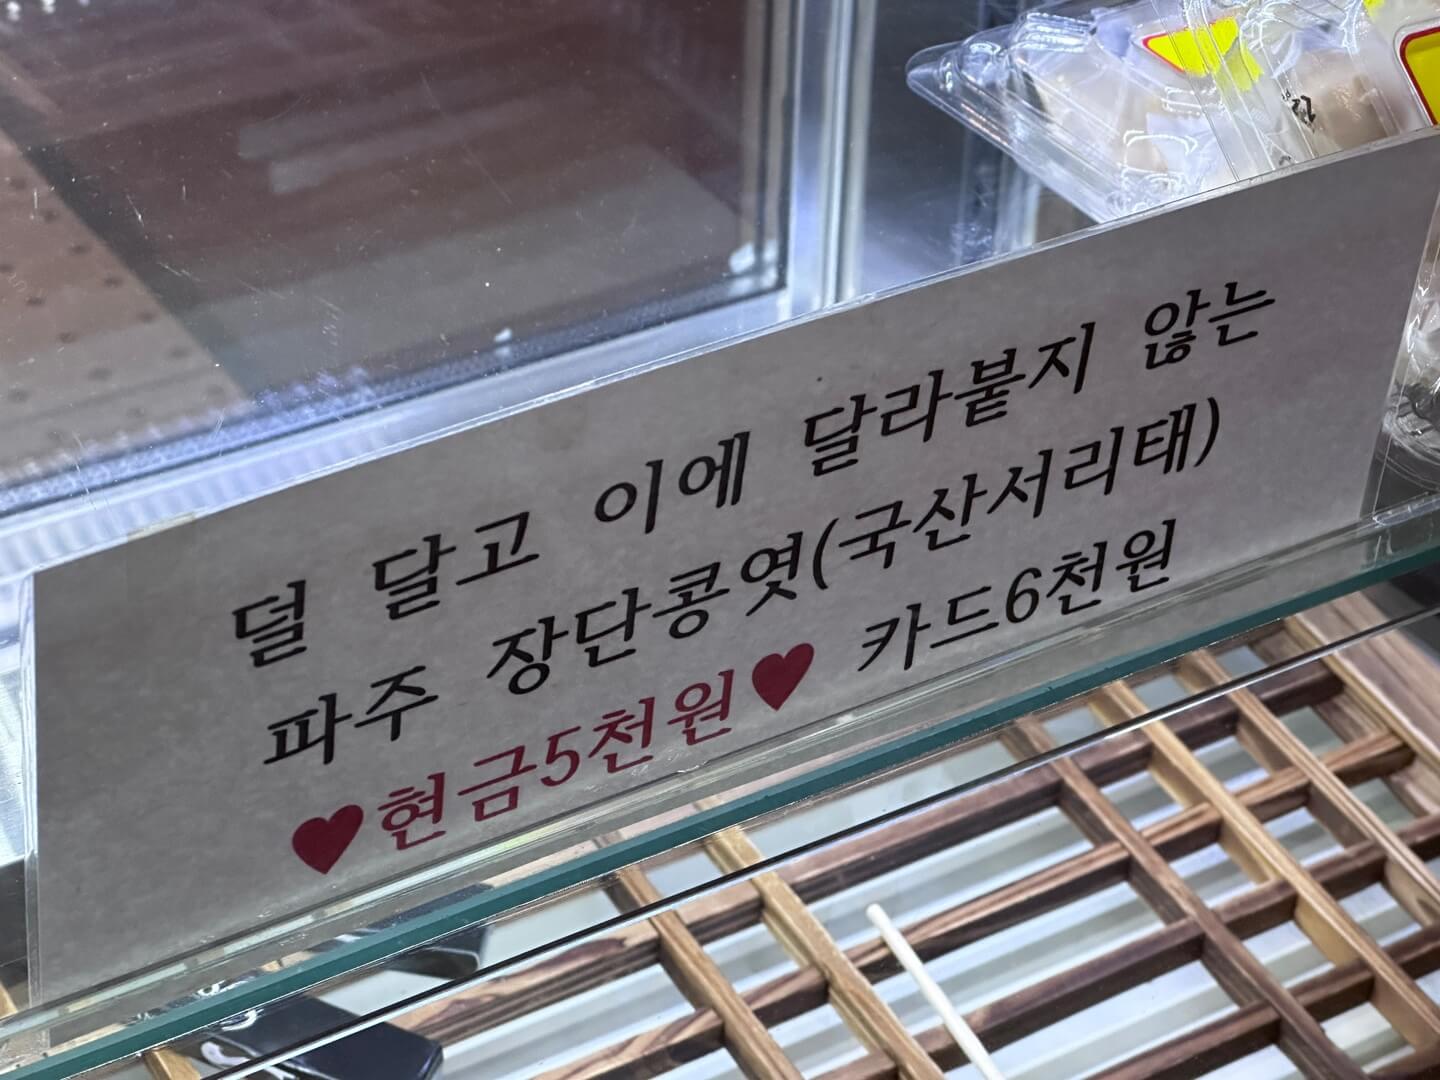 덜 달고 이에 달라붙지 않는
파주 장단콩엿(국산서리태)
♥현금5천원♥ 카드6천원